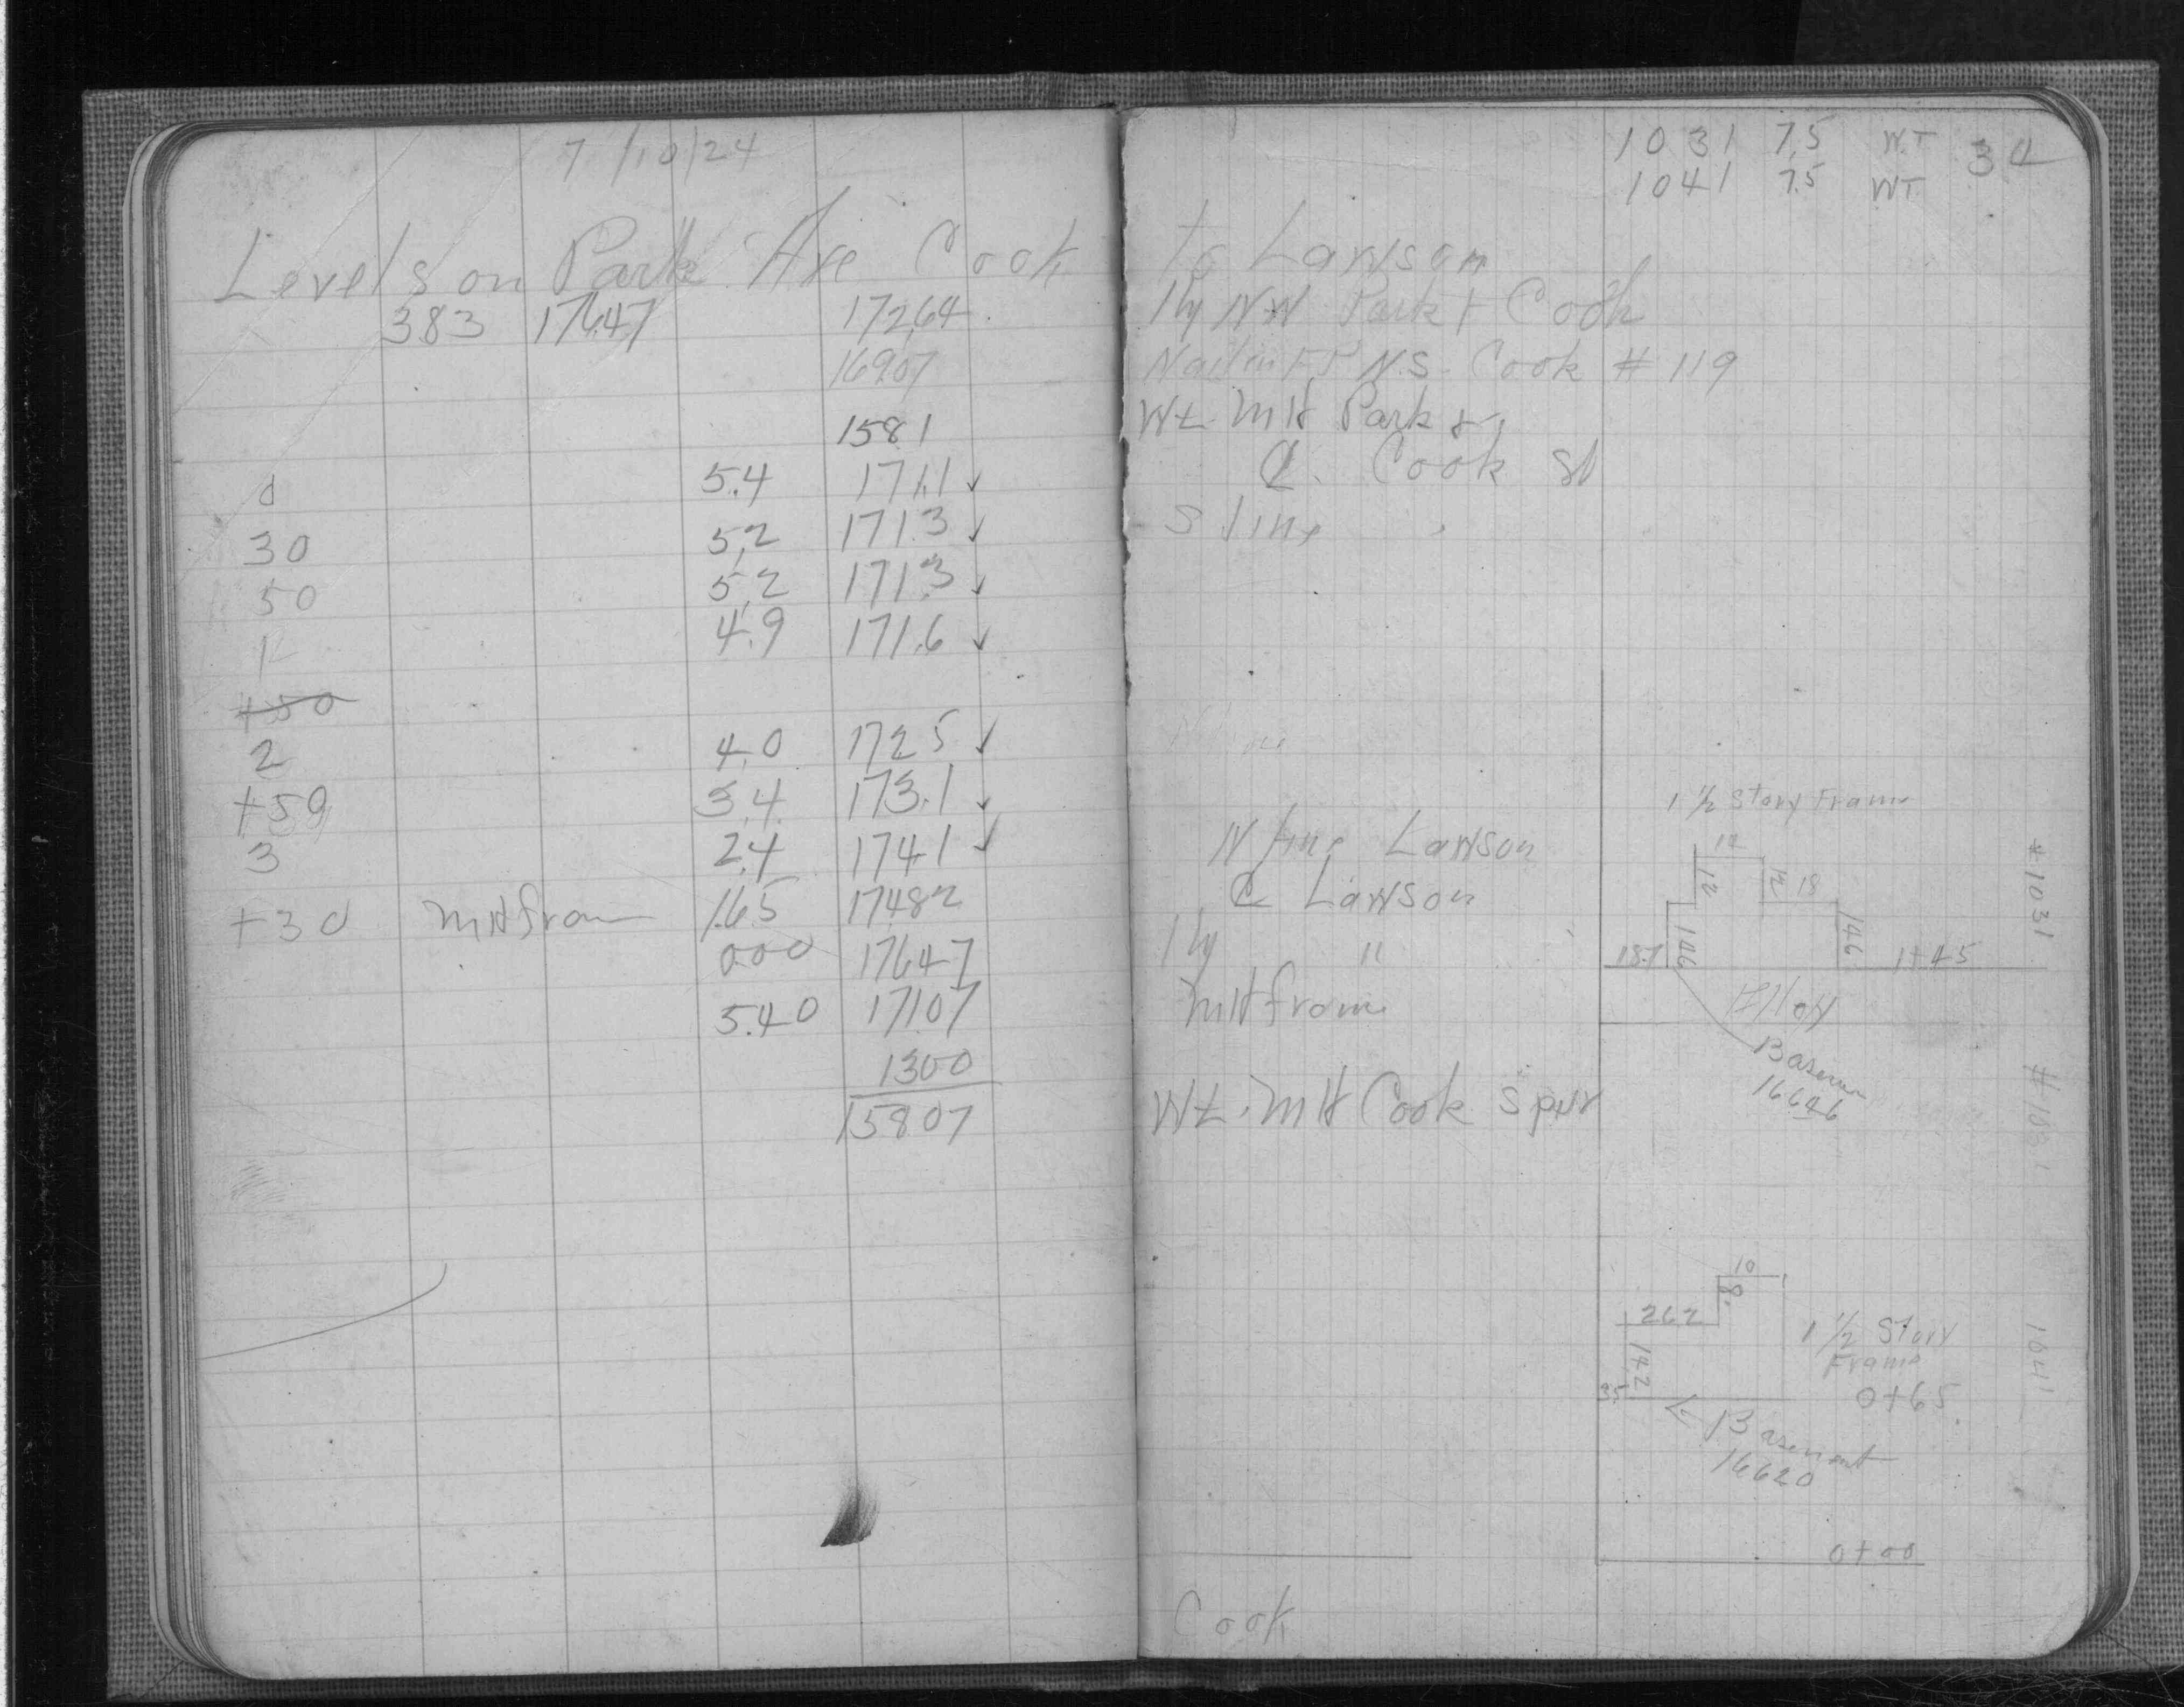 7/10/24
Levels on Park Ave Cook
383 17647 17264
16907
1581
0 5.4 171.1 ✓
30 5.2 171.3 ✓
50 5.2 171.3 ✓
1 4.9 171.6 ✓
+50
2 4.0 172.5 ✓
+50 3.4 173.1 ✓
3 2.4 174.1 ✓
+30 MH fram 1.65 17482
0.00 17647
5.40 17107
1300
15807
1031 7.5 WT 34
1041 7.5 WT
to Lawson
Hy NW Park & Cook
Nail in N.S. Cook # 119
Wt. MH Park &
℄ Cook St
S line
N line Lawson
℄ Lawson
Hy "
MH fram
Wt. MH Cook Spur
Cook
1 1/2 Story Fram
12
12
12
18
146
146
18.7
1+45
Alley
Basem
16646
#1031
#1031
10
8
262
142
35
1 1/2 Story
Frame
0+65
Basement
16620
1041
0+00